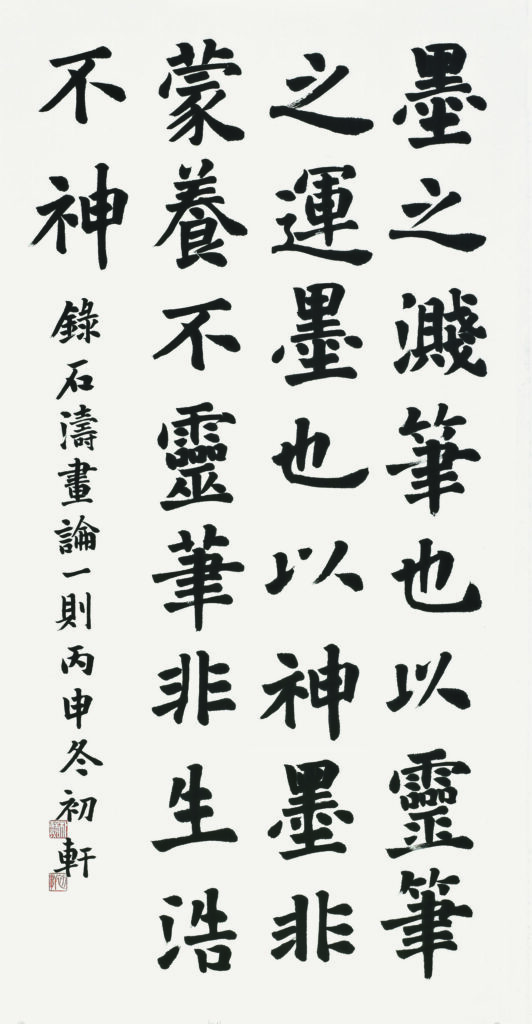 墨之濺筆也以靈筆
之運墨也以神墨非
蒙養不靈筆非生浩
不神
錄石濤畫論一則丙申冬初軒